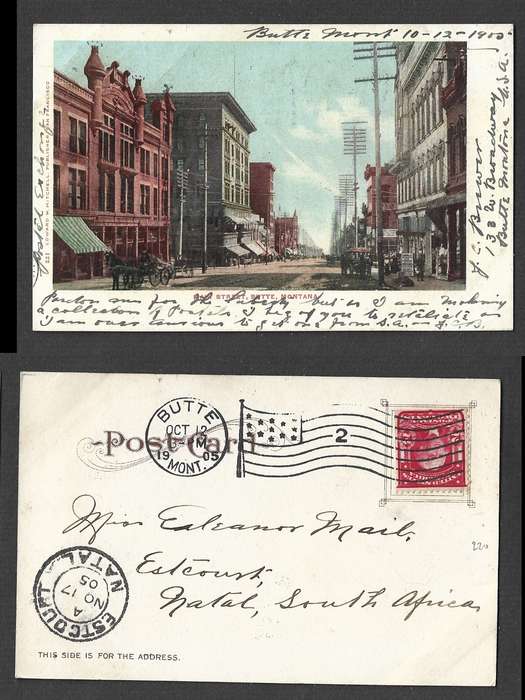 Butte Mont 10-12-1905
J. C. Brower
133 W. Broadway
Butte Montana U.S.A.
Postal Exchange
221 EDWARD H. MITCHELL, PUBLISHER, SAN FRANCISCO
MAIN STREET, BUTTE, MONTANA
Pardon me for but as I am making
a collection of Postals I beg of you to retaliate as
I am over anxious to get one from S.A. J.C.B.
Post Card
BUTTE
OCT 12
PM
1905
MONT.
2
Miss Ealeanor Mail,
Estcourt,
Natal, South Africa
220
ESTCOURT NATAL
A
NO 17
05
THIS SIDE IS FOR THE ADDRESS.